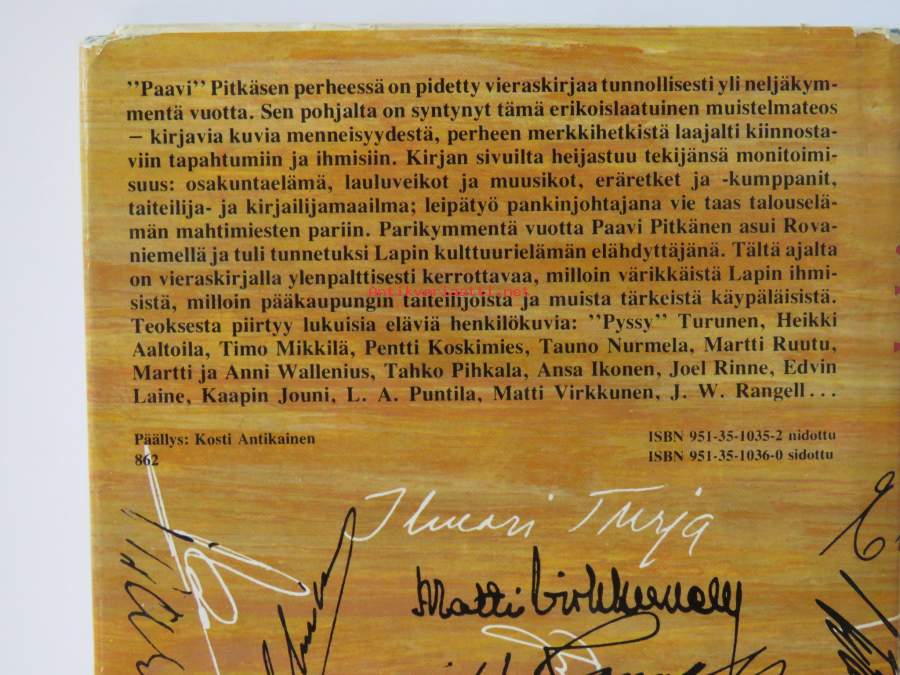 "Paavi" Pitkäsen perheessä on pidetty vieraskirjaa tunnollisesti yli neljäkym-
mentä vuotta. Sen pohjalta on syntynyt tämä erikoislaatuinen muistelmateos
– kirjavia kuvia menneisyydestä, perheen merkkihetkistä laajalti kiinnosta-
viin tapahtumiin ja ihmisiin. Kirjan sivuilta heijastuu tekijänsä monitoimi-
suus: osakuntaelämä, lauluveikot ja muusikot, eräretket ja -kumppanit,
taiteilija- ja kirjailijamaailma; leipätyö pankinjohtajana vie taas talouselä-
män mahtimiesten pariin. Parikymmentä vuotta Paavi Pitkänen asui Rova-
niemellä ja tuli tunnetuksi Lapin kulttuurielämän elähdyttäjänä. Tältä ajalta
on vieraskirjalla ylenpalttisesti kerrottavaa, milloin värikkäistä Lapin ihmi-
sistä, milloin pääkaupungin taiteilijoista ja muista tärkeistä käypäläisistä.
Antikvariaatti.net
Teoksesta piirtyy lukuisia eläviä henkilökuvia: "Pyssy" Turunen, Heikki
Aaltoila, Timo Mikkilä, Pentti Koskimies, Tauno Nurmela, Martti Ruutu,
Martti ja Anni Wallenius, Tahko Pihkala, Ansa Ikonen, Joel Rinne, Edvin
Laine, Kaapin Jouni, L. A. Puntila, Matti Virkkunen, J. W. Rangell . . .
Päällys: Kosti Antikainen
862
ISBN 951-35-1035-2 nidottu
ISBN 951-35-1036-0 sidottu
Ilmari Turja
Matti Virkkunen